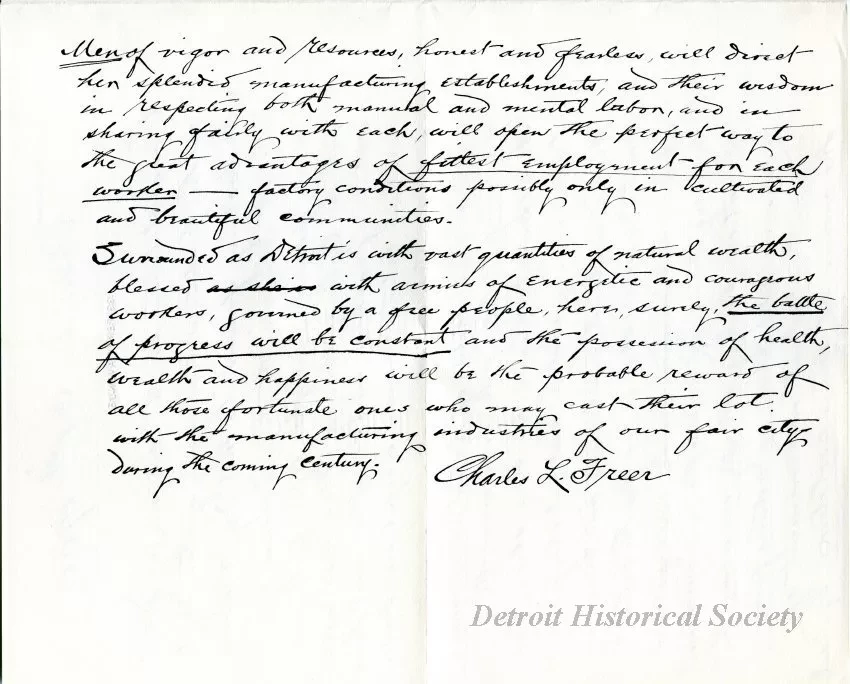 Men of vigor and resources, honest and fearless, will direct
her splendid manufacturing establishments, and their wisdom
in respecting both manual and mental labor, and in
sharing fairly with each, will open the perfect way to
the great advantages of fittest employment for each
worker — factory conditions possibly only in cultivated
and beautiful communities.
Surrounded as Detroit is with vast quantities of natural wealth,
blessed as she is with armies of energetic and courageous
workers, governed by a free people, here, surely, the battle
of progress will be constant and the possession of health,
wealth and happiness will be the probable reward of
all those fortunate ones who may cast their lot
with the manufacturing industries of our fair city
during the coming century.
Charles L. Freer
Detroit Historical Society